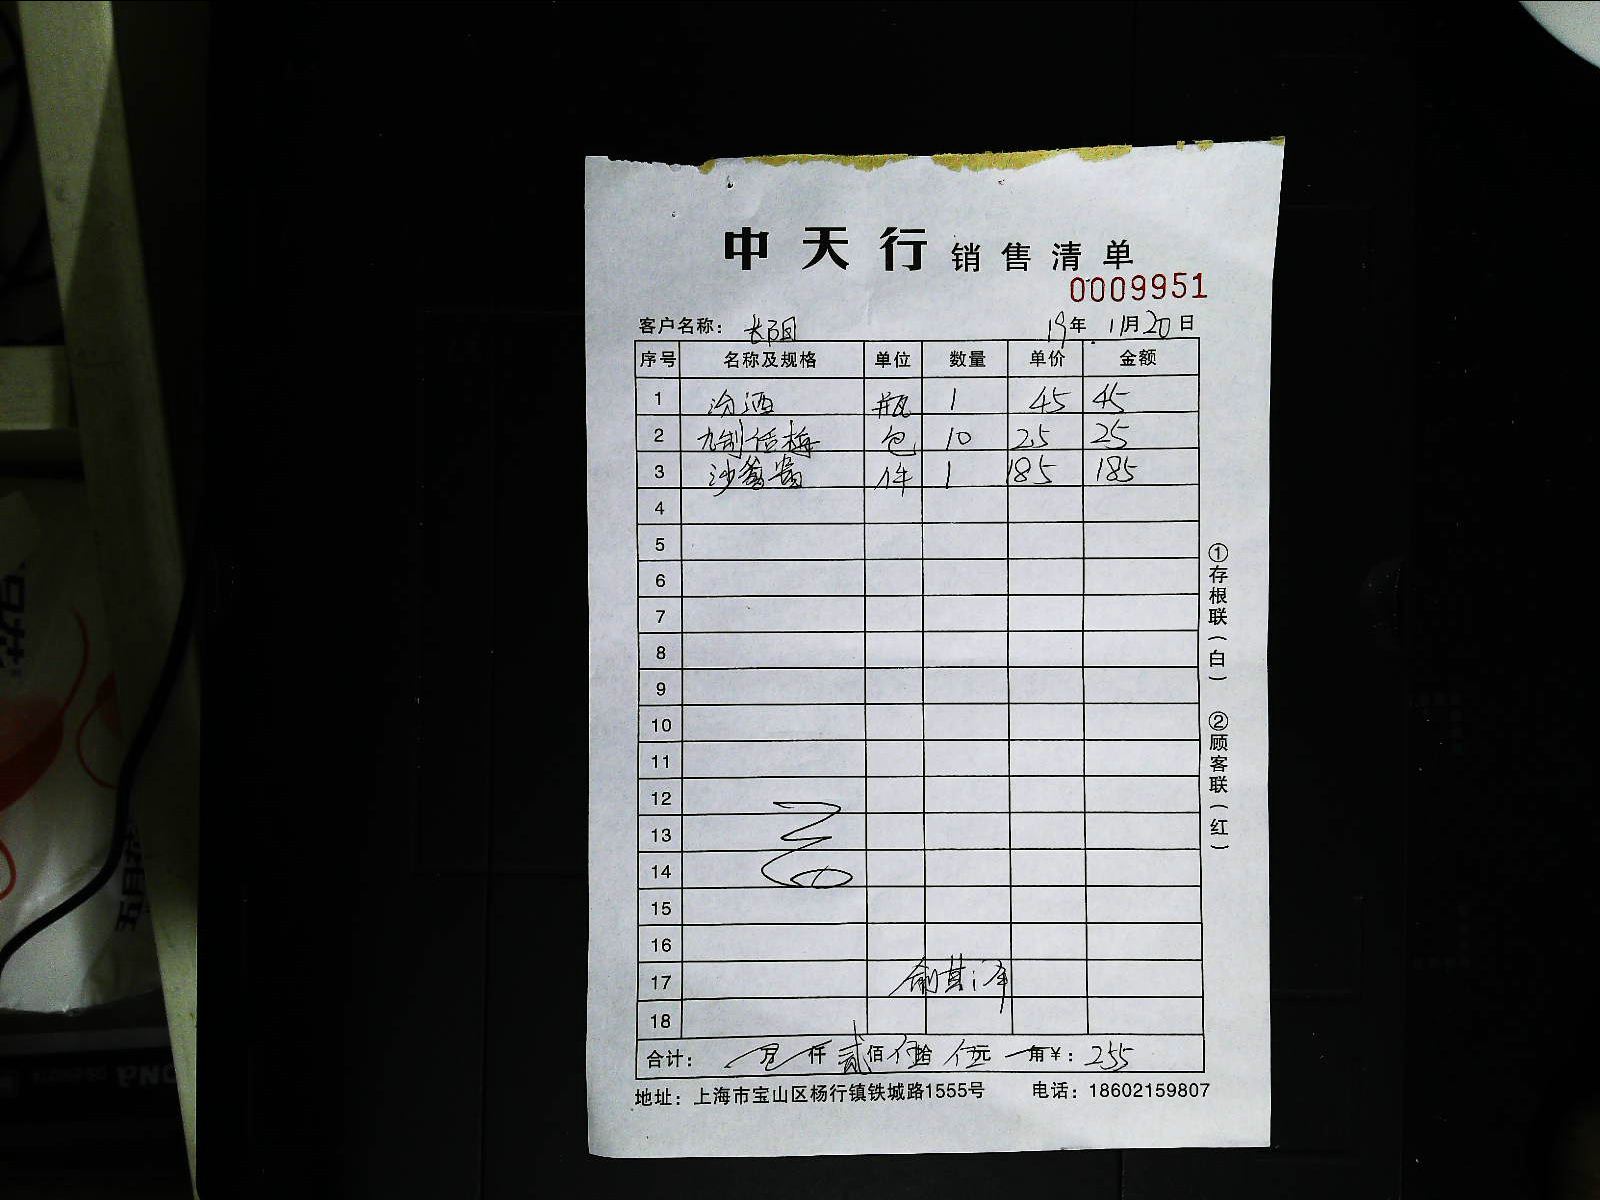 中天行 销售清单
0009951
客户名称： 长阳 19年 11月20日
序号 名称及规格 单位 数量 单价 金额
1 汾酒 瓶 1 45 45
2 九制话梅 包 10 2.5 25
3 沙爹酱 件 1 185 185
4
5
6
7
8
9
10
11
12
13
14
15
16
17
18
合计： 万 仟 贰佰伍拾 伍元 角¥： 255
地址：上海市宝山区杨行镇铁城路1555号 电话：18602159807
①存根联（白） ②顾客联（红）